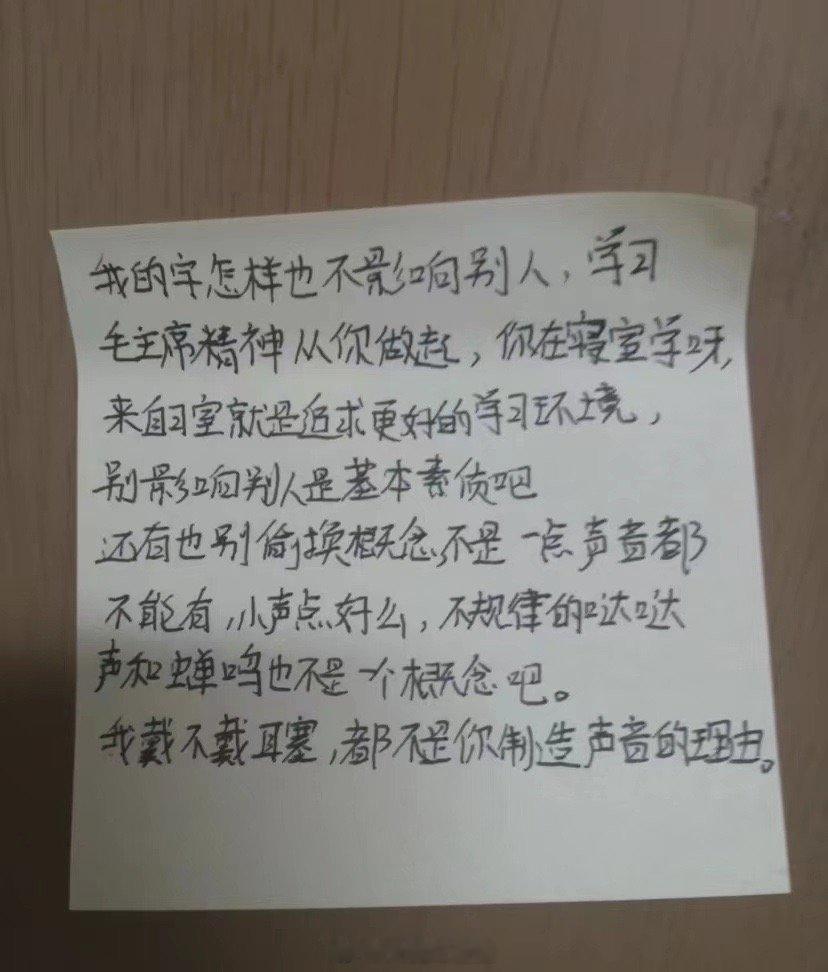 我的字怎样也不影响别人，学习
毛主席精神从你做起，你在寝室学呀，
来自习室就是追求更好的学习环境，
别影响别人是基本素质吧
还有也别偷换概念，不是一点声音都
不能有，小声点好么，不规律的哒哒
声和蝉鸣也不是一个概念吧。
我戴不戴耳塞，都不是你制造声音的理由。